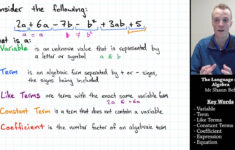 onsider the following:
2a + 6a - 7b - b² + 3ab + 5.
a = a
b 7 b²
hat is a:
Variable is an unknown value that is represented by
a letter or symbol a & b
Term is an algebraic form separated by + or - signs,
the signs being included.
Like Terms are terms with the exact same variable form
2a & 6a
Constant Term is a term that does not contain a variable
Coefficient is the number factor of an algebraic term
The Language of
Algebra
Mr Shaun
Key Words
- Variable
- Term
- Like Terms
- Constant Term
- Coefficient
- Expression
- Equation